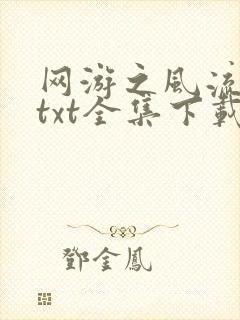 网游之风流
txt全集下載
鄧金鳳